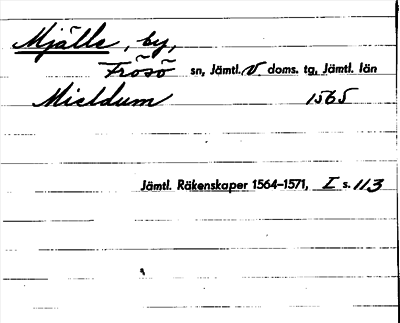 Mjälle, by,
Frösö sn, Jämtl. v. doms. tg, Jämtl. län
Mieldum 1565
Jämtl. Räkenskaper 1564–1571, I s. 113